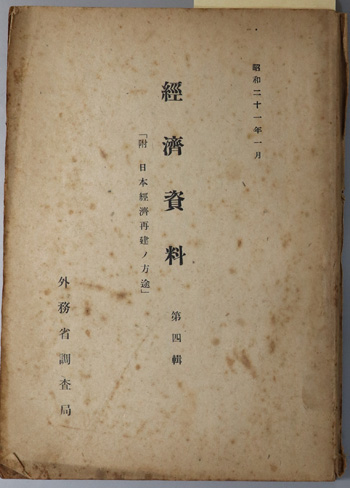 昭和二十一年一月
經濟資料 第四輯
「附 日本經濟再建ノ方途」
外務省調査局